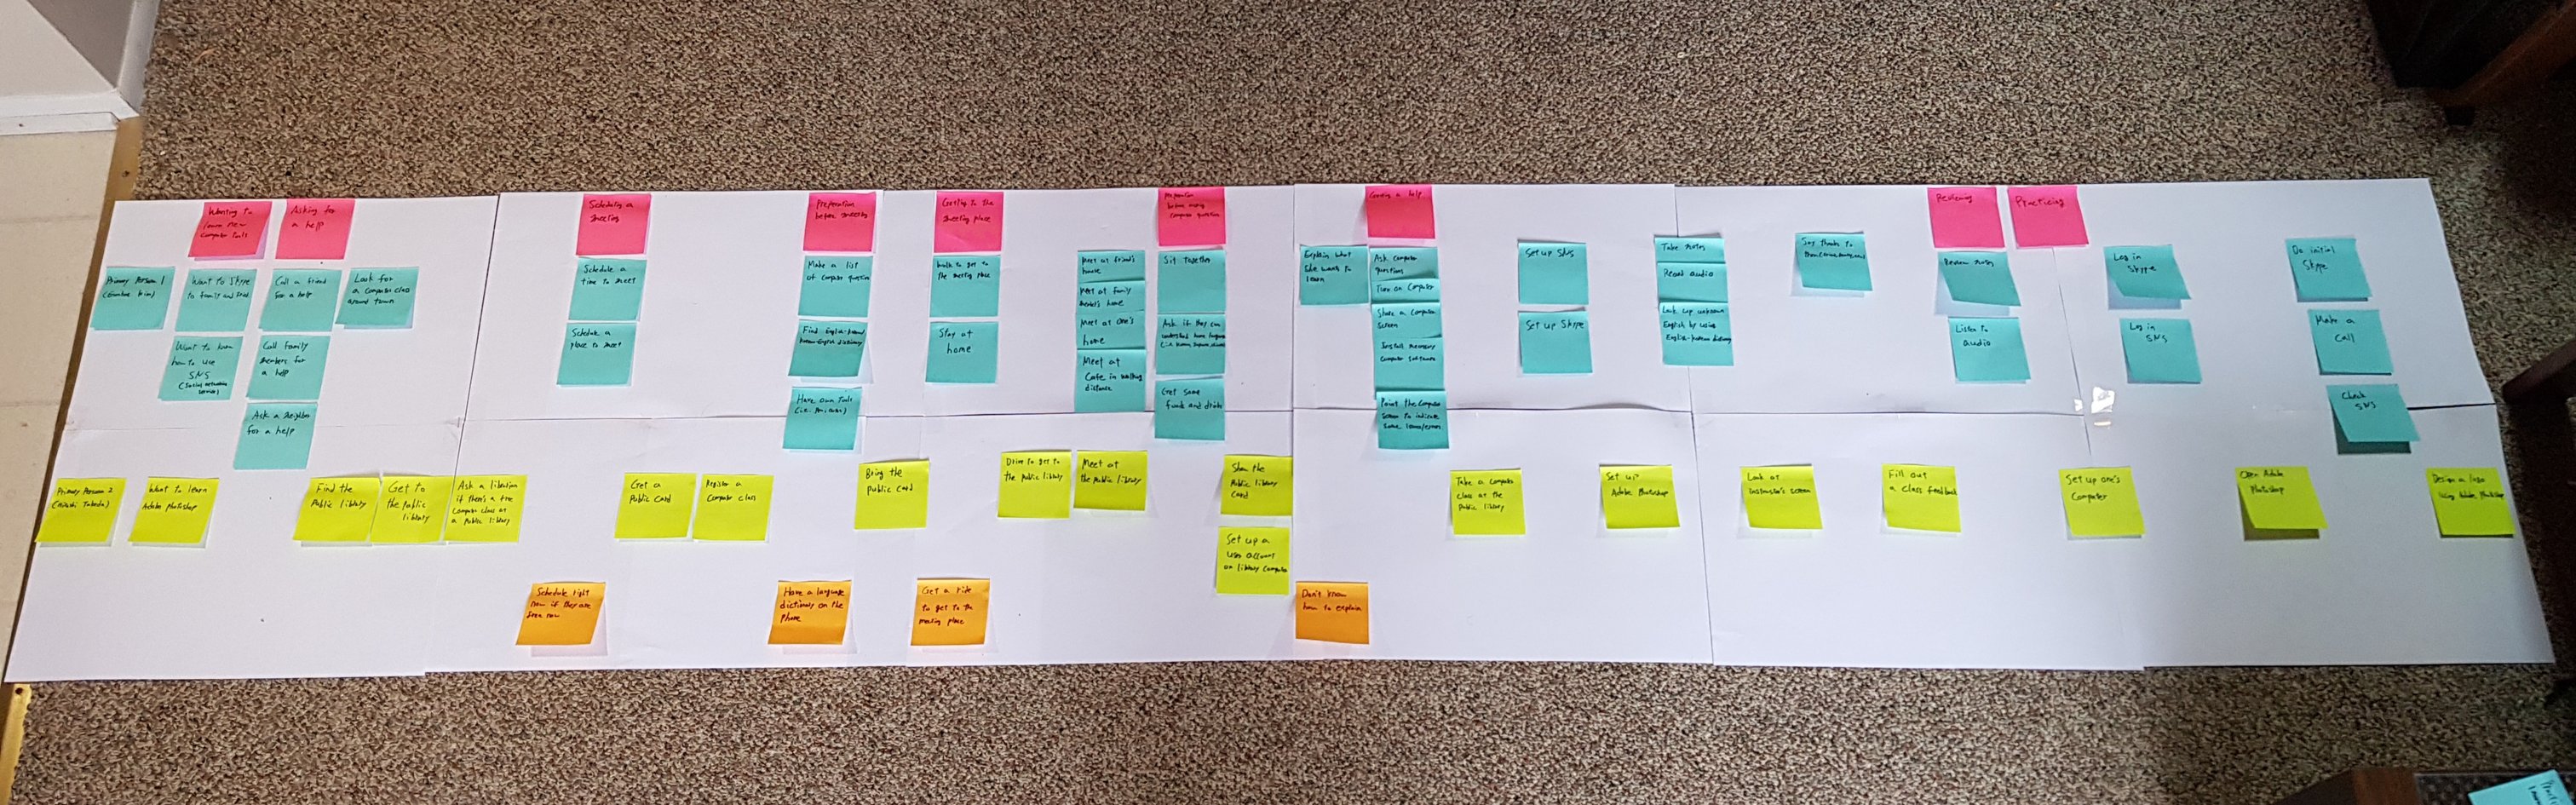 Wanting to
learn new
Computer tools
Asking for
a help
Scheduling a
meeting
Preparation
before meeting
Getting to the
meeting place
Preparation
before asking
computer question
a help
Reviewing
Practicing
Primary Person 1
Want to Skype
to family and
Call a friend
for a help
Look for
a Computer class
around town
Want to know
how to use
SNS
(Social networking
service)
Call family
members for
a help
Ask a neighbor
for a help
Schedule a
time to meet
Schedule a
place to meet
Make a list
of computer question
Find English-Korean/
Korean-English dictionary
Have own tools
walk to get to
the meeting place
Stay at
home
Meet at friend's
house
Meet at family
member's home
Meet at one's
home
Meet at
Cafe in walking
distance
Sit together
Ask if they can
understand home language
Get some
foods and drinks
Explain what
she wants to
learn
Ask computer
questions
Turn on Computer
Share a Computer
Screen
Install necessary
Computer software
Point the Computer
Screen to indicate
some
Set up SNS
Set up Skype
Take notes
Record audio
Look up unknown
English by using
English-Korean dictionary
Say thanks to
Review notes
Listen to
audio
Log in
Skype
Log in
SNS
Do initial
Skype
Make a
Call
Check
SNS
Primary Person 2
Want to learn
Adobe Photoshop
Find the
Public library
Get to
the public
library
Ask a librarian
if there's a free
Computer class at
a Public library
Get a
Public Card
Register a
Computer class
Bring the
public card
Drive to get to
the public library
Meet at
the public library
Show the
Public library
Card
Set up a
user account
on library Computer
Take a computer
class at the
Public library
Set up
Adobe Photoshop
Look at
instructor's screen
Fill out
a class feedback
Set up one's
Computer
Open Adobe
Photoshop
Design a logo
using Adobe Photoshop
Schedule right
now if they are
free now
Have a language
dictionary on the
Phone
Get a ride
to get to the
meeting place
Don't know
how to explain